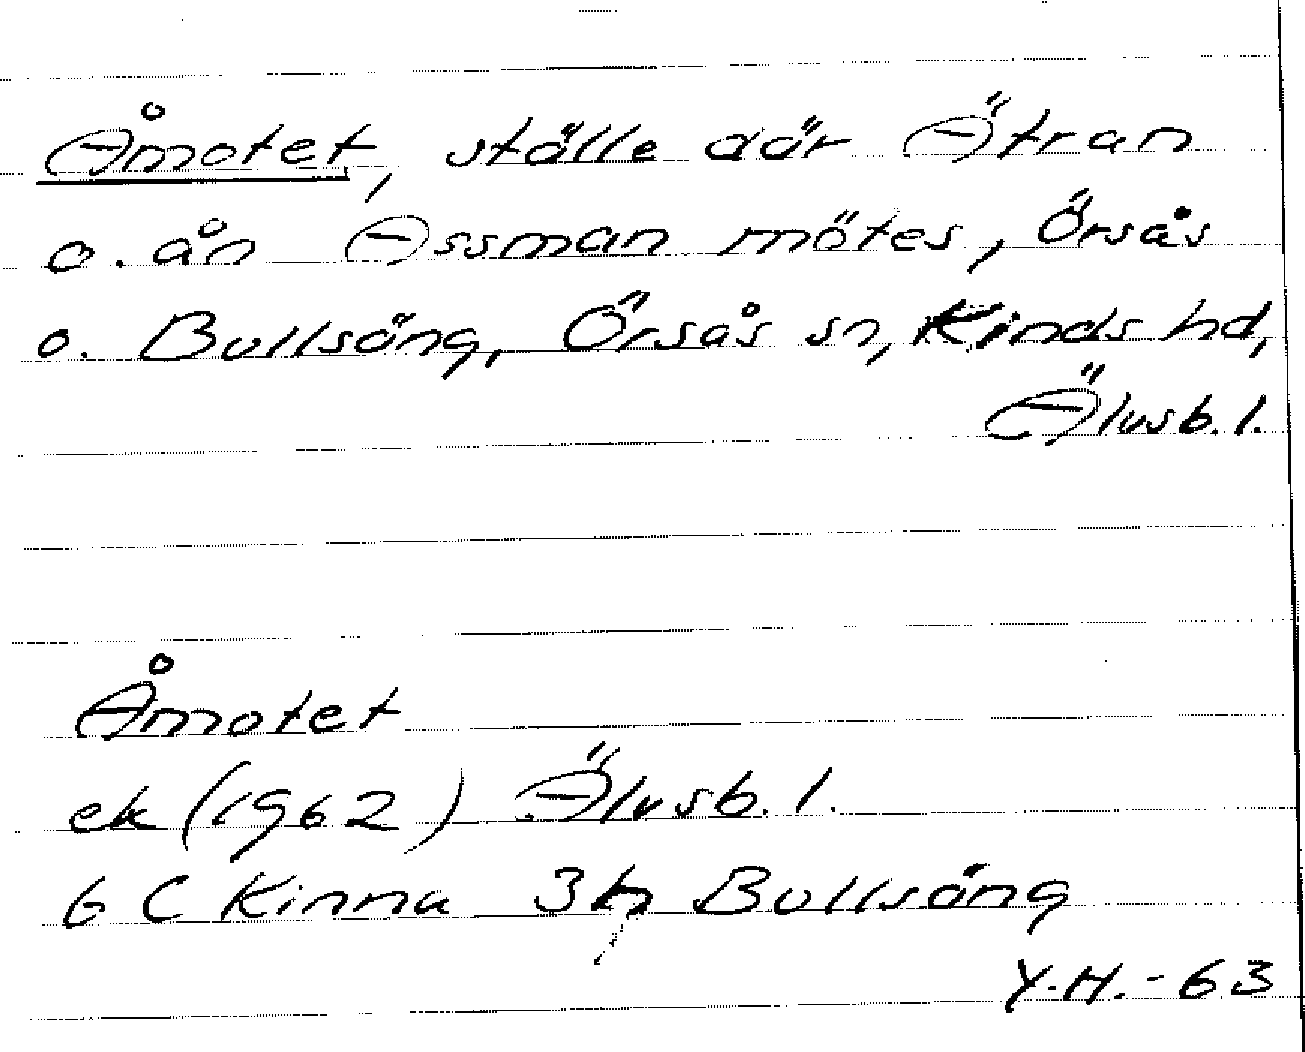 Åmotet, ställe där Ätran
o. ån Assman mötes, Örsås
o. Bullsäng, Örsås sn, Kinds hd,
Älvsb. l.
Åmotet
ek (1962) Älvsb. l.
6 C Kinna 3h Bullsäng
Y.H. - 63